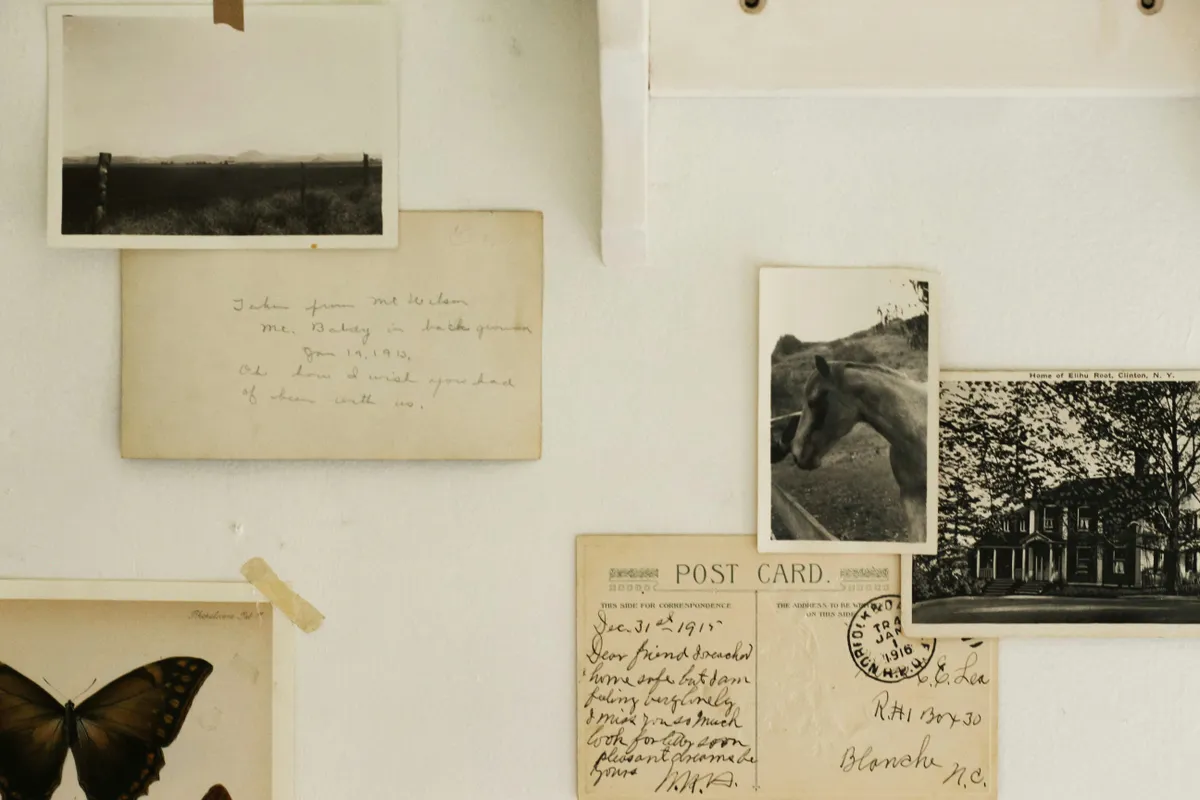 Taken from Mt Wilson
Mt. Baldy in background
Jan 19, 1913,
Oh how I wish you had
of been with us.
Home of Elihu Root, Clinton, N. Y.
POST CARD.
THIS SIDE FOR CORRESPONDENCE
Dec. 31st 1915
Dear friend I reached
home safe but I am
feeling very lonely
I miss you so much
look for letter soon
pleasant dreams be
yours
THE ADDRESS TO BE
ON THIS SIDE
NORFOLK &
TRA
JAN
1
1916
C. E. Lea
R#1 Box 30
Blanche N.C.